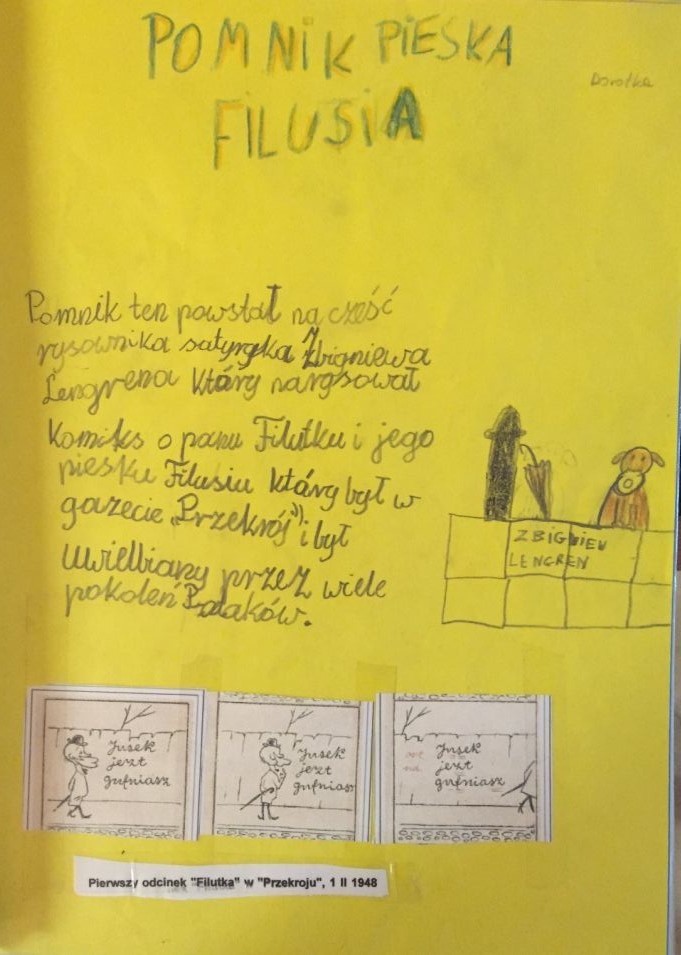 POMNIK PIESKA
FILUSIA
Dorotka
Pomnik ten powstał na cześć
rysownika satyryka Zbigniewa
Lengrena który narysował
Komiks o panu Filutku i jego
piesku Filusiu który był w
gazecie „Przekrój” i był
uwielbiany przez wiele
pokoleń Polaków.
ZBIGNIEW
LENGREN
Jusek
jezt
gufniasz
Jusek
jezt
gufniasz
Jusek
jezt
gufniasz
Pierwszy odcinek "Filutka" w "Przekroju", 1 II 1948